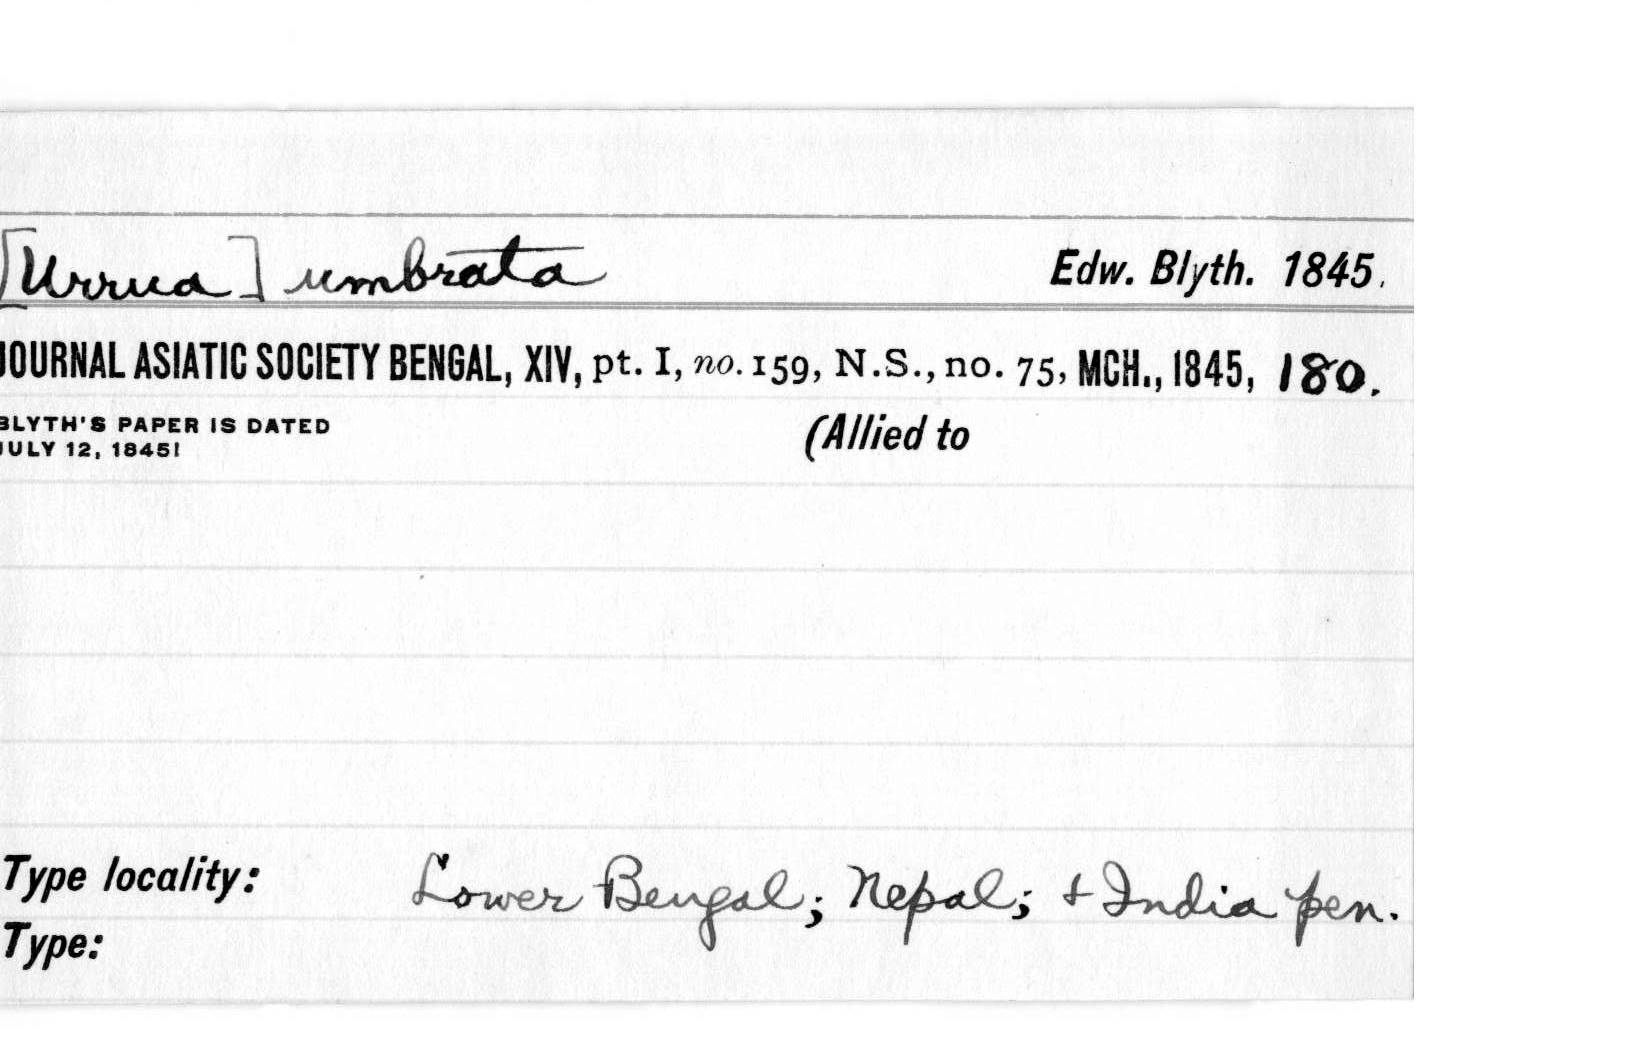 [Urrua] umbrata Edw. Blyth. 1845.
JOURNAL ASIATIC SOCIETY BENGAL, XIV, pt. I, no. 159, N.S., no. 75, MCH., 1845, 180.
BLYTH'S PAPER IS DATED (Allied to
JULY 12, 1845!
Type locality: Lower Bengal; Nepal; + India pen.
Type: